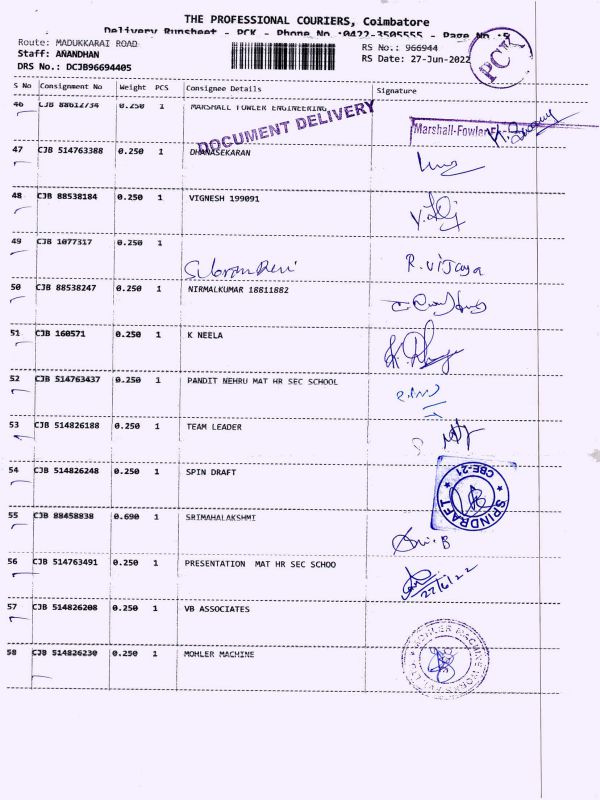 THE PROFESSIONAL COURIERS, Coimbatore
Delivery Runsheet - PCK - Phone No :0422-3505555 - Page No :5
Route: MADUKKARAI ROAD
Staff: ANANDHAN
DRS No.: DCJB96694405
RS No.: 966944
RS Date: 27-Jun-2022
PCK
S No Consignment No Weight PCS Consignee Details Signature
46 CJB 88612734 0.250 1 MARSHALL FOWLER ENGINEERING
DOCUMENT DELIVERY
Marshall-Fowler
47 CJB 514763388 0.250 1 DHANASEKARAN
48 CJB 88538184 0.250 1 VIGNESH 199091
49 CJB 1077317 0.250 1
R. Vijaya
50 CJB 88538247 0.250 1 NIRMALKUMAR 18811882
51 CJB 160571 0.250 1 K NEELA
52 CJB 514763437 0.250 1 PANDIT NEHRU MAT HR SEC SCHOOL
53 CJB 514826188 0.250 1 TEAM LEADER
54 CJB 514826248 0.250 1 SPIN DRAFT
SPINDRAFT CBE-21
55 CJB 88458838 0.690 1 SRIMAHALAKSHMI
56 CJB 514763491 0.250 1 PRESENTATION MAT HR SEC SCHOO
27/6/22
57 CJB 514826208 0.250 1 VB ASSOCIATES
58 CJB 514826230 0.250 1 MOHLER MACHINE
MOHLER MACHINE WORKS PVT. LTD.